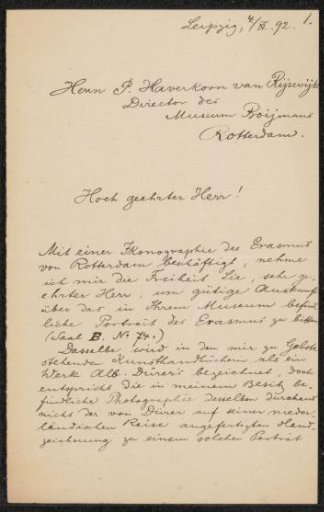 1.
Leipzig, 4/XI. 92.
Herrn P. Haverkorn van Rijsewijk
Director des
Museum Boijmans
Rotterdam.
Hoch geehrter Herr!
Mit einer Ikonographie des Erasmus
von Rotterdam beschäftigt, nehme
ich mir die Freiheit Sie, sehr ge-
ehrter Herr, um gütige Auskunft
über das in Ihrem Museum befind-
liche Portrait des Erasmus zu bitten
(Saal B. Nr. 74.)
Dasselbe wird in den mir zu Gebote
stehenden Kunsthandbüchern als ein
Werk Alb. Dürers bezeichnet, doch
entspricht die in meinem Besitz be-
findliche Photographie desselben durchaus
nicht der von Dürer auf seiner nieder-
ländischen Reise angefertigten Hand-
zeichnung zu einem solchen Portrait